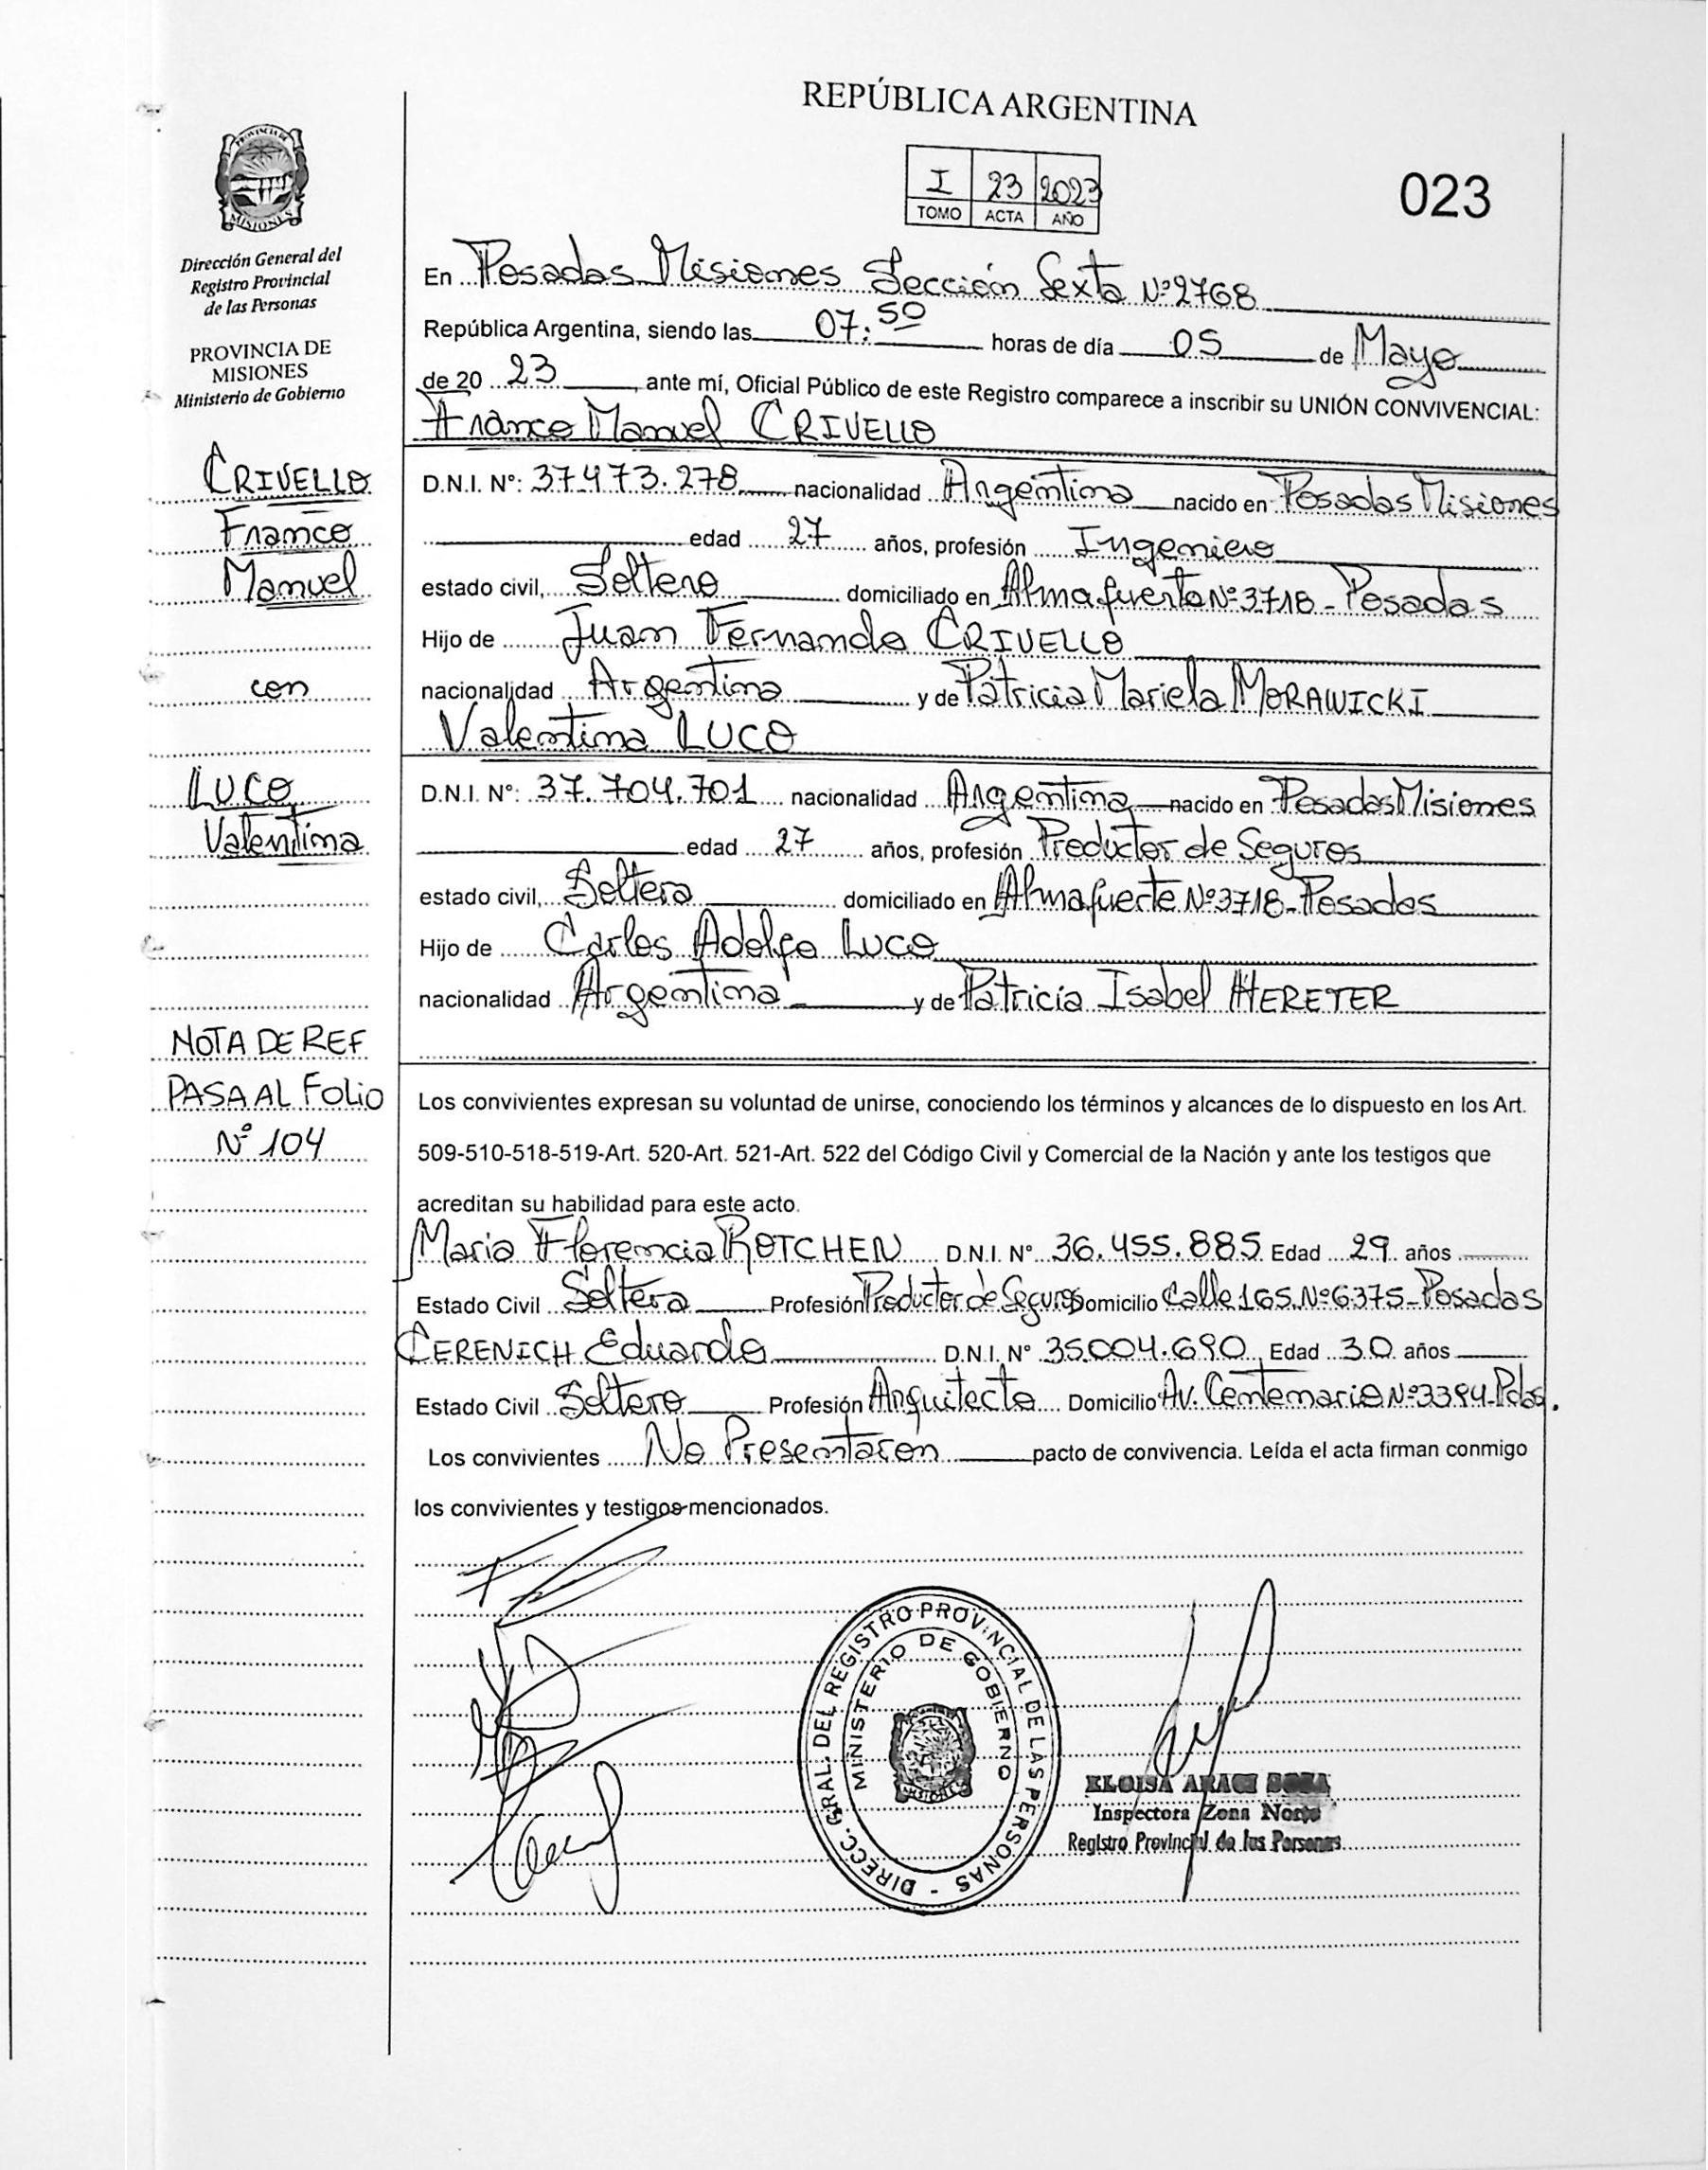 REPÚBLICA ARGENTINA
I 23 2023
TOMO ACTA AÑO
023
PROVINCIA DE
MISIONES
Dirección General del
Registro Provincial
de las Personas
PROVINCIA DE
MISIONES
Ministerio de Gobierno
CRIVELLO
Franco
Manuel
con
LUCO
Valentina
NOTA DE REF
PASA AL FOLIO
N° 104
En Posadas Misiones Sección Sexta Nº 2768
República Argentina, siendo las 07:50 horas de día 05 de Mayo
de 20 23, ante mí, Oficial Público de este Registro comparece a inscribir su UNIÓN CONVIVENCIAL:
Franco Manuel CRIVELLO
D.N.I. N°: 37.473.278 nacionalidad Argentina nacido en Posadas Misiones
edad 27 años, profesión Ingeniero
estado civil, Soltero domiciliado en Almafuerte Nº 3718 - Posadas
Hijo de Juan Fernando CRIVELLO
nacionalidad Argentina y de Patricia Mariela MORAWICKI
Valentina LUCO
D.N.I. N°: 37.704.701 nacionalidad Argentina nacido en Posadas Misiones
edad 27 años, profesión Productor de Seguros
estado civil, Soltera domiciliado en Almafuerte Nº 3718 - Posadas
Hijo de Carlos Adolfo LUCO
nacionalidad Argentina y de Patricia Isabel HERETER
Los convivientes expresan su voluntad de unirse, conociendo los términos y alcances de lo dispuesto en los Art.
509-510-518-519-Art. 520-Art. 521-Art. 522 del Código Civil y Comercial de la Nación y ante los testigos que
acreditan su habilidad para este acto.
Maria Florencia ROTCHEN D.N.I. N° 36.455.885 Edad 29 años
Estado Civil Soltera Profesión Productor de Seguros Domicilio Calle 165 Nº 6375 - Posadas
CERENICH Eduardo D.N.I. N° 35.004.690 Edad 30 años
Estado Civil Soltero Profesión Arquitecto Domicilio Av. Centenario Nº 3394 - Pdas.
Los convivientes No Presentaron pacto de convivencia. Leída el acta firman conmigo
los convivientes y testigos mencionados.
DIRECC. GRAL. DEL REGISTRO PROVINCIAL DE LAS PERSONAS -
MINISTERIO DE GOBIERNO
MISIONES
ELOISA
Inspectora Zona Norte
Registro Provincial de las Personas